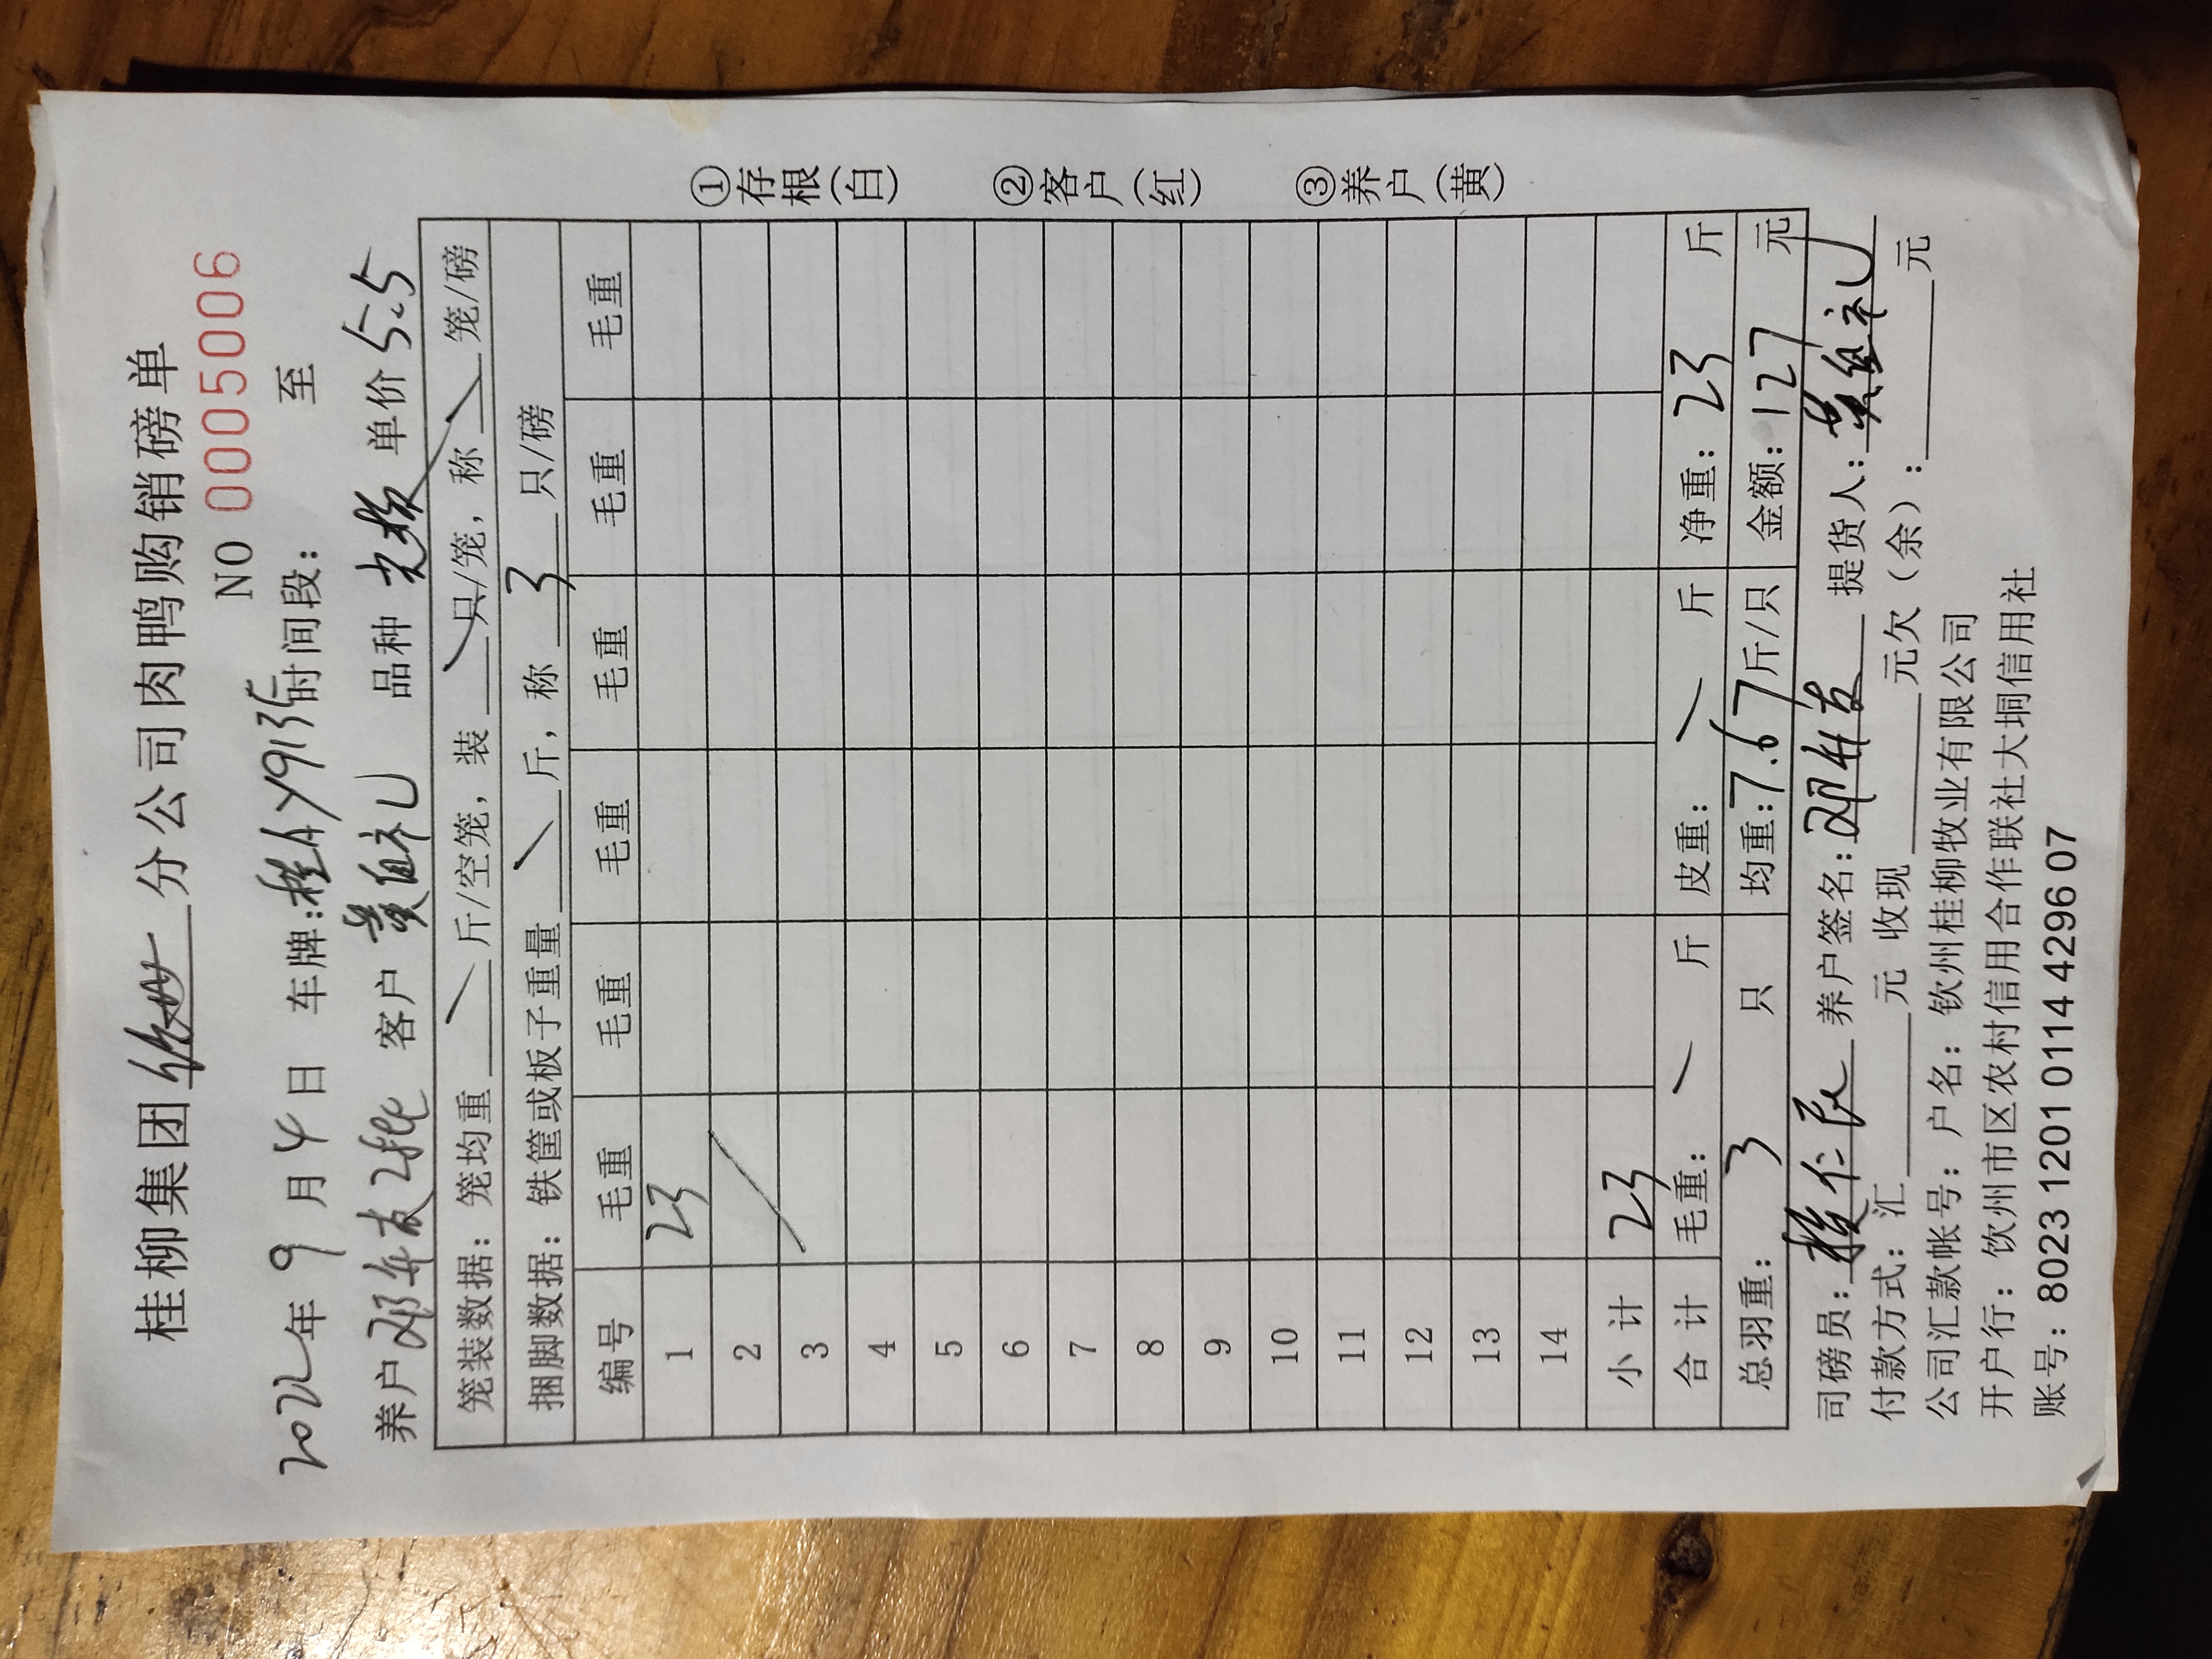 桂柳集团 分公司肉鸭购销磅单
NO 0005006
2022年 9 月 4 日 车牌:桂AY9135 时间段: 至
养户 邓年友2批 客户 黄组礼 品种 单价 5.5
笼装数据: 笼均重 斤/空笼, 装 只/笼, 称 笼/磅
捆脚数据: 铁筐或板子重量 斤, 称 3 只/磅
编号 毛重 毛重 毛重 毛重 毛重 毛重
1 23
2
3
4
5
6
7
8
9
10
11
12
13
14
小计 23
合计 毛重: 斤 皮重: 斤 净重: 23 斤
总羽重: 3 只 均重: 7.67 斤/只 金额: 127 元
司磅员: 养户签名: 邓年友 提货人: 黄组礼
付款方式: 汇 元 收现 元欠(余): 元
公司汇款帐号: 户名: 钦州桂柳牧业有限公司
开户行: 饮州市区农村信用合作联社大垌信用社
账号: 8023 1201 0114 4296 07
①存根(白) ②客户(红) ③养户(黄)